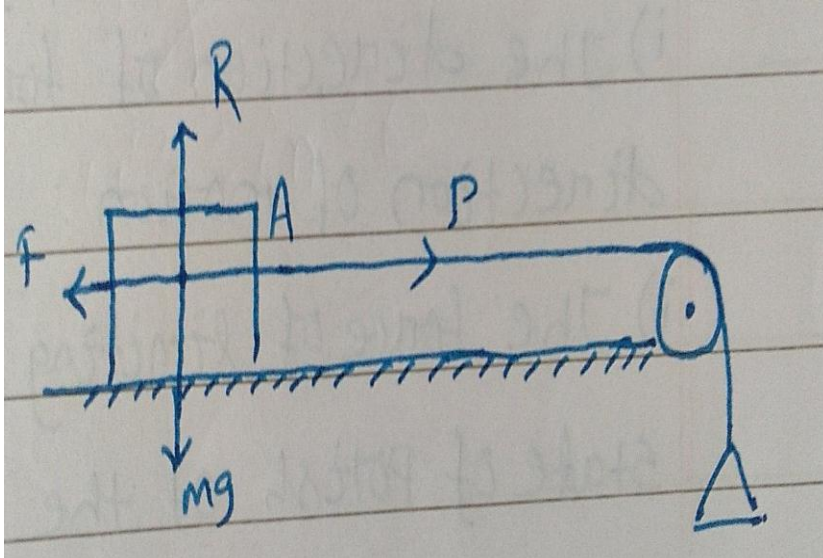 R
A
P
F
mg